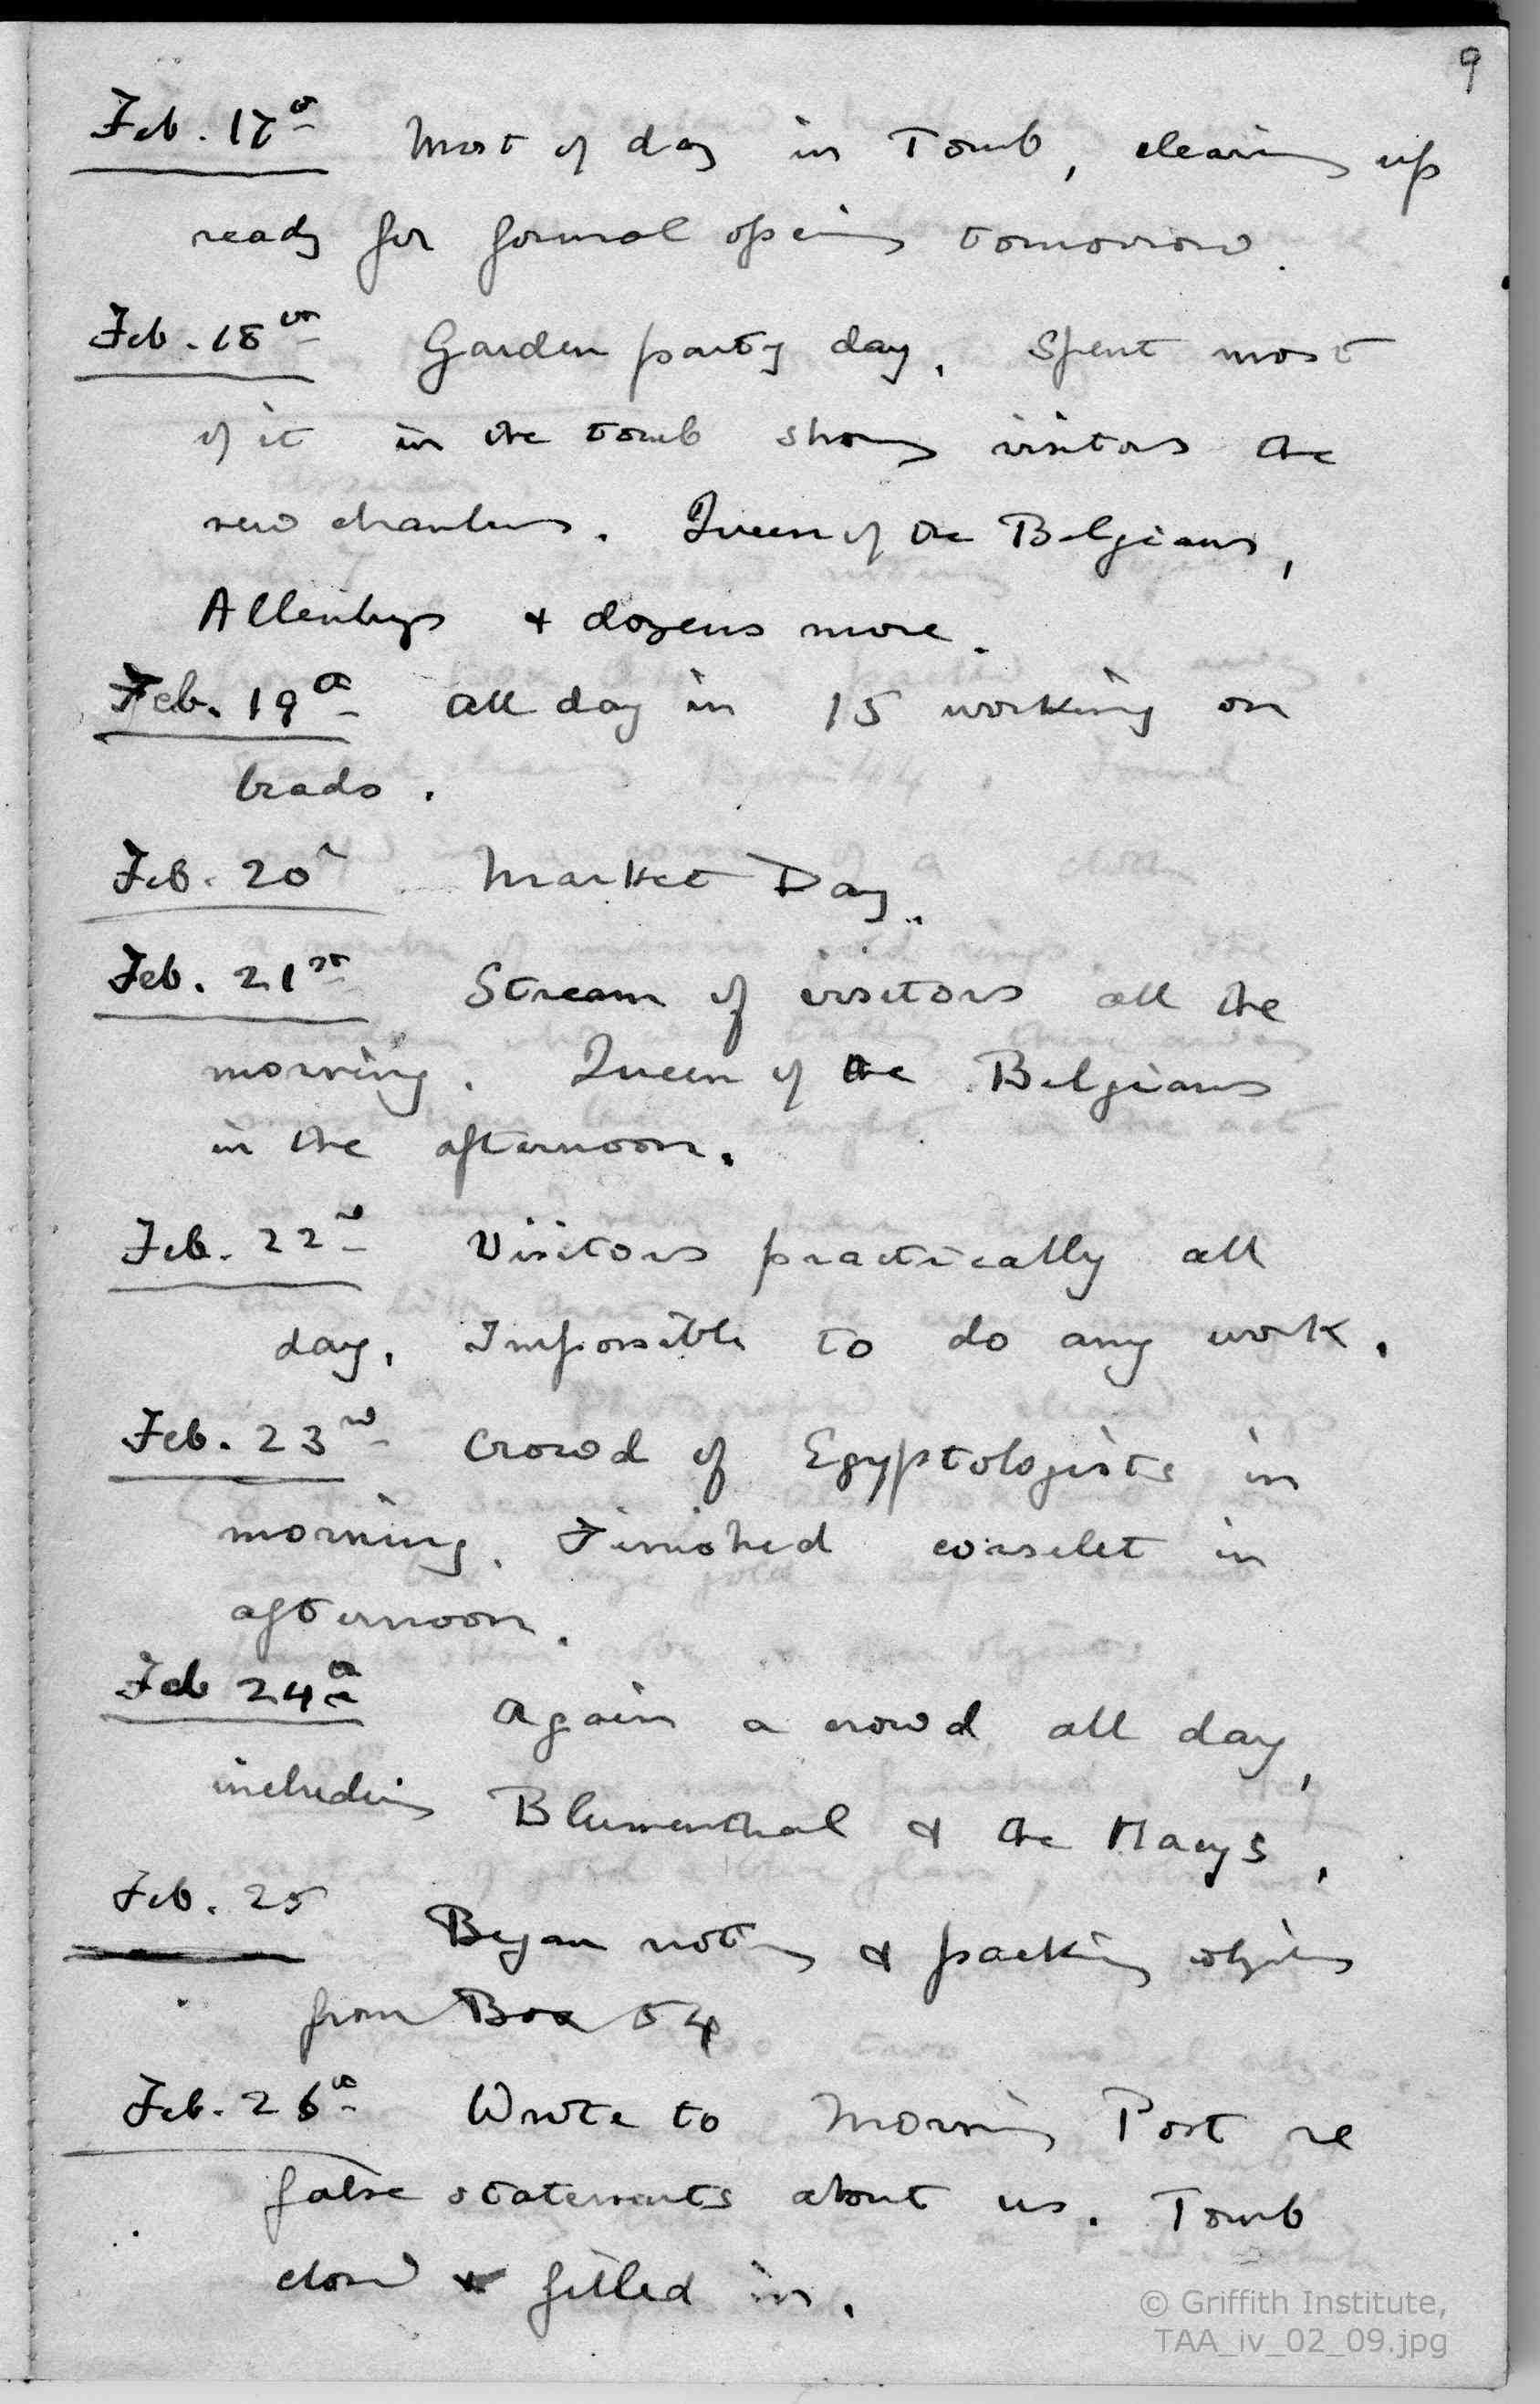 9
Feb. 17th Most of day in Tomb, clearing up
ready for formal opening tomorrow.
Feb. 18th Garden party day. Spent most
of it in the tomb showing visitors the
new chambers. Queen of the Belgians,
Allenbys & dozens more.
Feb. 19th All day in 15 working on
beads.
Feb. 20th Market Day.
Feb. 21st Stream of visitors all the
morning. Queen of the Belgians
in the afternoon.
Feb. 22nd Visitors practically all
day. Impossible to do any work.
Feb. 23rd Crowd of Egyptologists in
morning. Finished corselet in
afternoon.
Feb 24th Again a crowd all day,
including Blumenthal & the Macys.
Feb. 25 Began noting & packing objects
from Box 54
Feb. 26th Wrote to Morning Post re
false statements about us. Tomb
closed & filled in.
© Griffith Institute,
TAA_iv_02_09.jpg